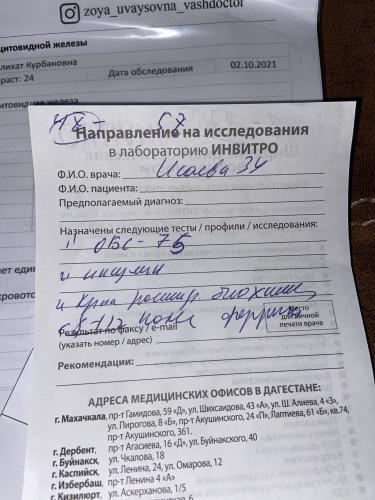 zoya_uvaysovna_vashdoctor
цитовидной железы
лихат Курбановна
раст: 24
Дата обследования
02.10.2021
итовидная железа
Направление на исследования
в лабораторию ИНВИТРО
Ф.И.О. врача: Исаева ЗУ
Ф.И.О. пациента:
Предполагаемый диагноз:
Назначены следующие тесты / профили / исследования:
ОБС-75
и инсулин
и Кровь расшир. биохимия
Результат по факсу / e-mail
(указать номер / адрес)
Место
для личной
печати врача
Рекомендации:
АДРЕСА МЕДИЦИНСКИХ ОФИСОВ В ДАГЕСТАНЕ:
г. Махачкала, пр-т Гамидова, 59 «Д», ул. Шихсаидова, 43 «А», ул. Ш. Алиева, 4 «З»,
ул. Пирогова, 8 «Б», пр-т Акушинского, 24 «П», Лаптиева, 61 «Б», кв.74,
пр-т Акушинского, 361.
г. Дербент, пр-т Агасиева, 16 «Д», ул. Буйнакского, 40
г. Буйнакск, ул. Чкалова, 18
г. Каспийск, ул. Ленина, 24, ул. Омарова, 12
г. Избербаш, пр-т Ленина 4 «А»
г. Кизилюрт, ул. Аскерханова, 1/5